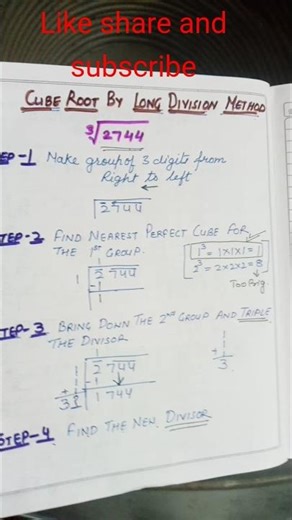 Like share and
subscribe
CUBE ROOT BY LONG DIVISION METHOD
∛2744
EP-1 Make group of 3 digits from
Right to left
←
2744
STEP-2 FIND NEAREST PERFECT CUBE FOR
THE 1ST GROUP.
1³ = 1x1x1 = 1
2³ = 2x2x2 = 8
Too Big
1
1 2744
-1
1
STEP-3 BRING DOWN THE 2nd GROUP AND TRIPLE
THE DIVISOR
1
1 2744
1 -1
+1
3 1744
1
1
+1
3
STEP-4 FIND THE NEW DIVISOR